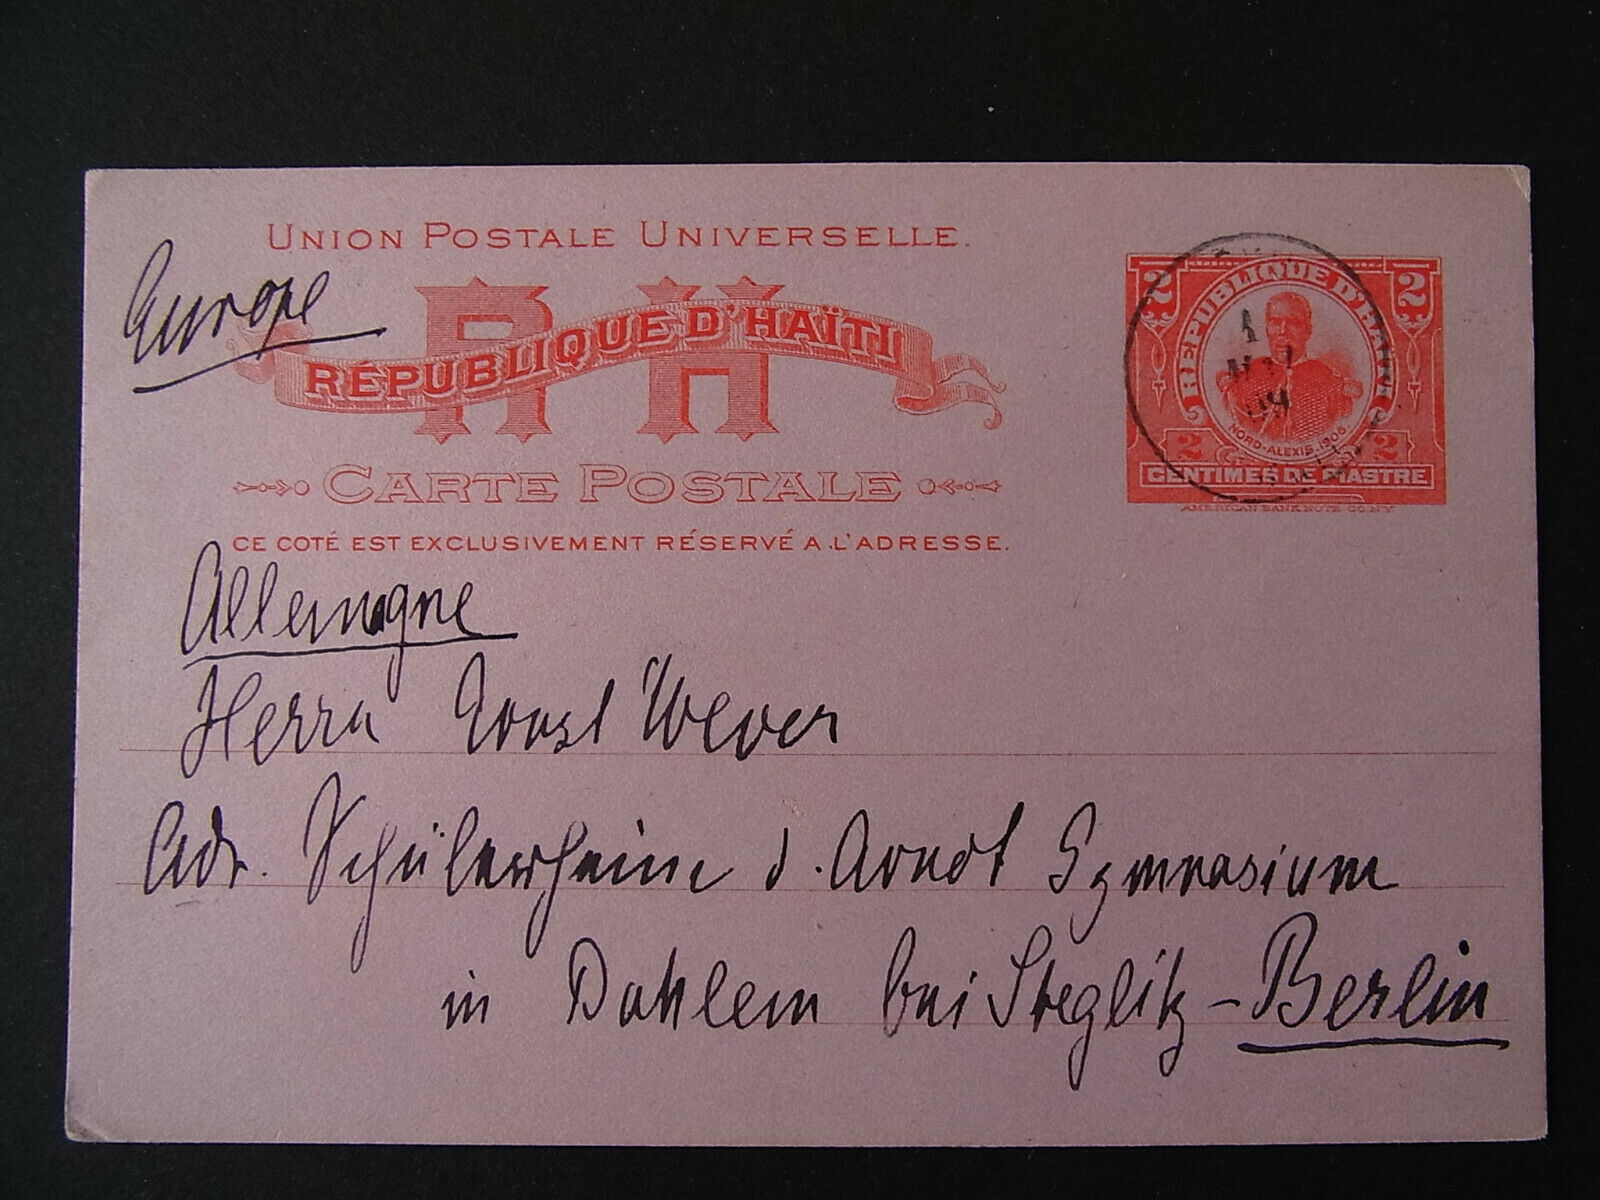 UNION POSTALE UNIVERSELLE.
Europe
RH
RÉPUBLIQUE D'HAÏTI
CARTE POSTALE
CE COTÉ EST EXCLUSIVEMENT RÉSERVÉ A L'ADRESSE.
2 RÉPUBLIQUE D'HAITI 2
1
09
NORD-ALEXIS, 1906.
2 2
CENTIMES DE PIASTRE
AMERICAN BANK NOTE CO. N.Y.
Allemagne
Herrn Ernst Wever
Adr. Schülerheim d. Arndt Gymnasium
in Dahlem bei Steglitz - Berlin